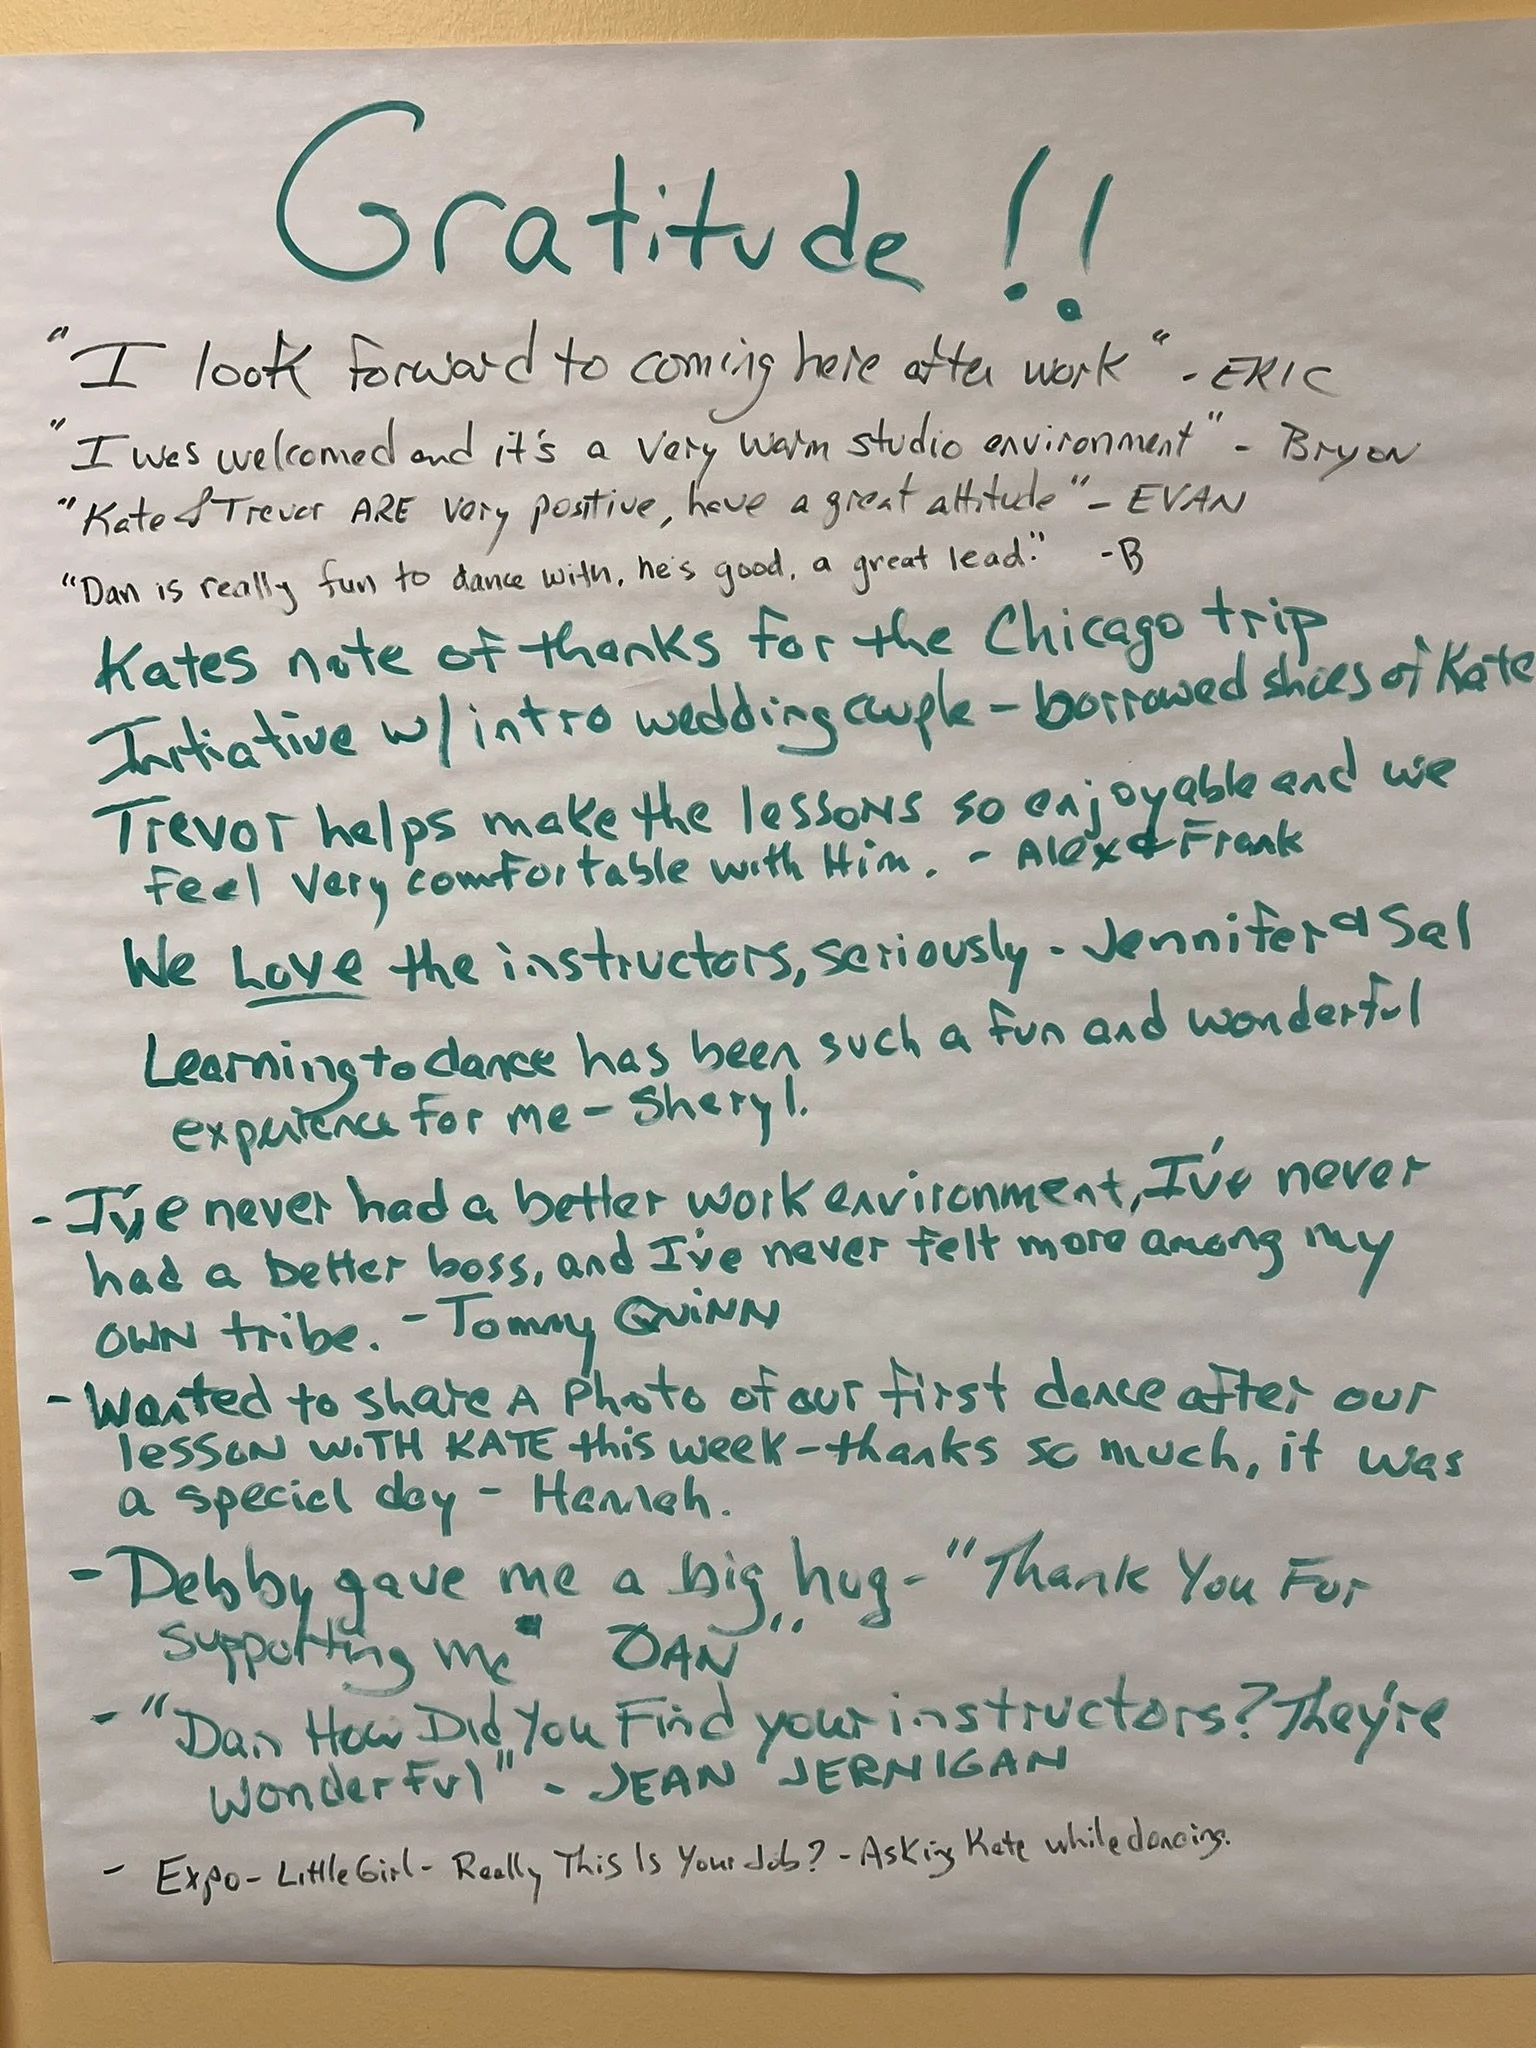 Gratitude !!
"I look forward to coming here after work" - ERIC
"I was welcomed and it's a very warm studio environment" - Bryon
"Kate & Trevor ARE very positive, have a great attitude" - EVAN
"Dan is really fun to dance with, he's good, a great lead." -B
Kates note of thanks for the Chicago trip
Initiative w/ intro wedding couple - borrowed shoes of Kate
Trevor helps make the lessons so enjoyable and we
feel very comfortable with Him. - Alex & Frank
We Love the instructors, seriously - Jennifer & Sal
Learning to dance has been such a fun and wonderful
experience for me - Sheryl.
- I've never had a better work environment, I've never
had a better boss, and I've never felt more among my
own tribe. - Tommy Quinn
- Wanted to share A Photo of our first dance after our
lesson WITH KATE this week - thanks so much, it was
a special day - Hannah.
- Debby gave me a big hug - "Thank You For
supporting me" DAN"
- "Dan How Did You Find your instructors? They're
wonderful" - JEAN JERNIGAN
- Expo - Little Girl - Really This Is Your Job? - Asking Kate while dancing.